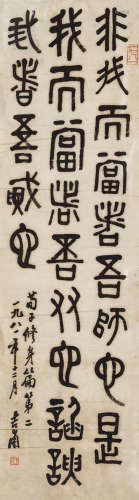 非我而當者吾師也是
我而當者吾友也諂諛
我者吾賊也
荀子修身篇第二
一九八一年十二月